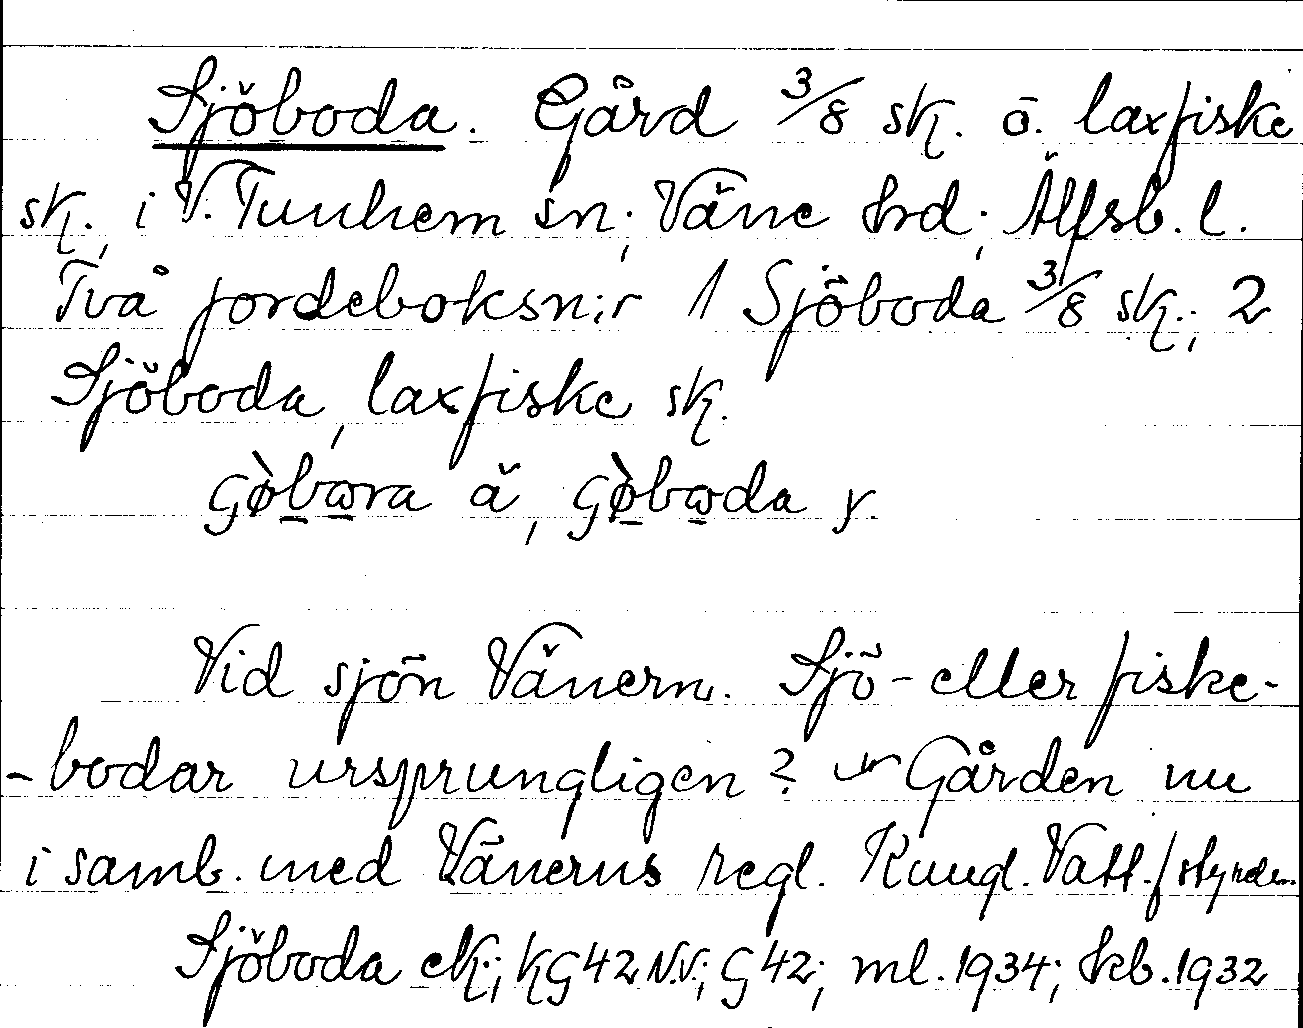 Sjöboda. Gård 3/8 sk. o. laxfiske
sk., i V. Tunhem sn; Väne hrd; Älfsb. l.
Två jordeboksn:r 1 Sjöboda 3/8 sk.; 2
Sjöboda, laxfiske sk.
ä, y.
Vid sjön Vänern. Sjö- eller fiske-
-bodar ursprungligen? Gården nu
i samb. med Vänerns regl. Kungl. Vatt.f styrelsen.
Sjöboda ek.; KG42 N.V.; G42; ml. 1934; skb. 1932